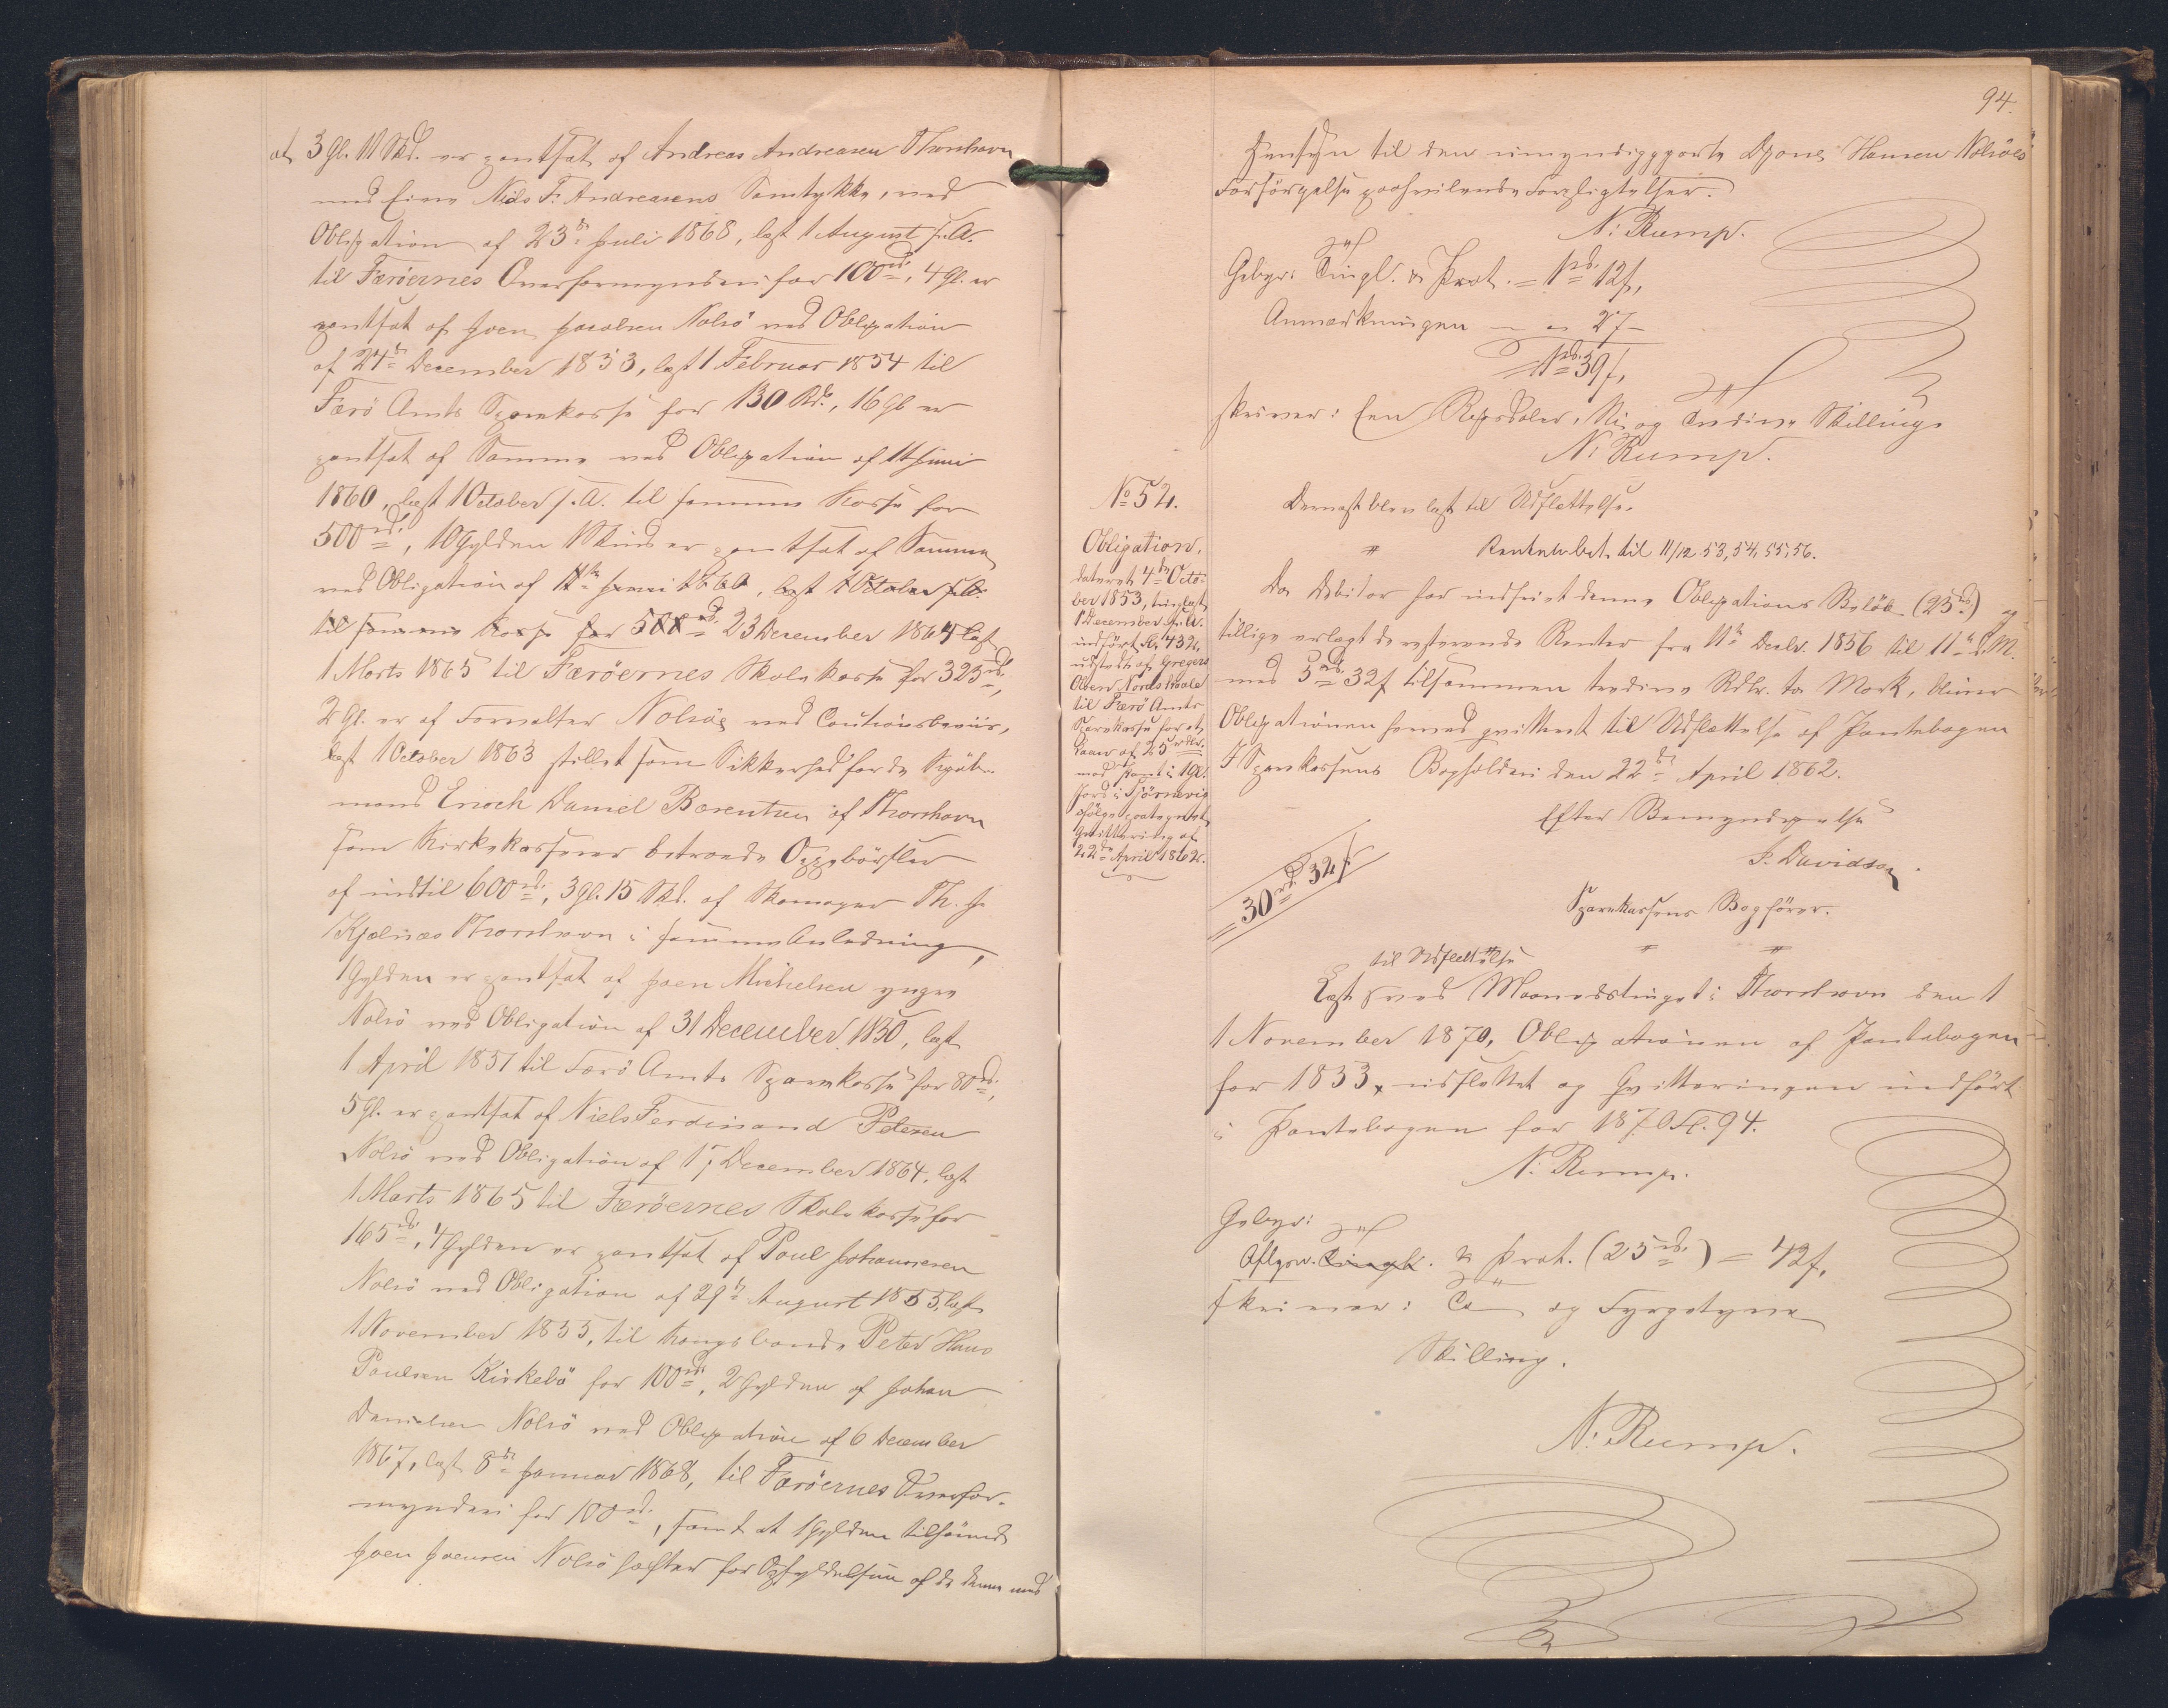 at 3 Gl. 11 Skd. er pantsat af Andreas Andreasen Thorshavn
med Eier Niels F. Andreasens Samtykke, ved
Obligation af 23de Juli 1868, læst 1 August s. A.
til Færöernes Overformynderi for 100 rd., 4 Gl. er
pantsat af Joen Jacobsen Nolsö ved Obligation
af 24de December 1853, læst 1 Februar 1854 til
Færö Amts Sparekasse for 130 Rd., 16 Gl. er
pantsat af Samme ved Obligation af 11 Juni
1860, læst 1 October s. A. til samme Kasse for
500 rd., 10 Gylden 1 Skind er pantsat af Samme
ved Obligation af 11te Juni 1860, læst 1 October s. A.
til samme Kasse for 500 rd. 23 December 1864 læst
1 Marts 1865 til Færöernes Skolekasse for 325 rd.,
2 Gl. er af Forvalter Nolsöe ved Cautionsbeviis,
læst 1 October 1863 stillet som Sikkerhed for de Kjöb-
mand Enoch Daniel Bærentsen af Thorshavn
som Kirkekasserer betroede Oppebörsler
af indtil 600 rd., 3 Gl. 15 Skd. af Skomager Th. J.
Kjelnæs Thorshavn i samme Anledning,
1 Gylden er pantsat af Joen Michelsen yngre
Nolsö ved Obligation af 31 December 1850, læst
1 April 1851 til Færö Amts Sparekasse for 80 rd.,
5 Gl. er pantsat af Niels Ferdinand Petersen
Nolsö ved Obligation af 17 December 1864, læst
1 Marts 1865 til Færöernes Skolekasse for
165 rd., 4 Gylden er pantsat af Poul Johannesen
Nolsö ved Obligation af 29de August 1855, læst
1 November 1855, til Kongsbonde Peter Hans
Poulsen Kirkebö for 100 rd., 2 Gylden af Johan
Danielsen Nolsö ved Obligation af 6 December
1867, læst 8de Januar 1868, til Færöernes Overfor-
mynderi for 100 rd., samt at 1 Gylden tilhörende
Joen Joensen Nolsö hæfter for Opfyldelsen af de denne med
94.
Hensyn til den umyndiggjorte Djone Hansen Nolsöes
Forsörgelse paahvilende Forpligtelser.
N. Rump.
Gebyr: Tingl. & Prot. = 1 rd. 12 s,
Anmærkningen — " 27 -
1 rd. 39 s,
skriver: Een Rigsdaler, Ni og Tredive Skilling.
N. Rump.
No 52.
Obligation,
dateret 4de Octo-
ber 1853, tinglæst
1 December s. A.
indfört fol. 432,
udstedt af Gregers
Olsen Nordskaale
til Færö Amts
Sparekasse for et
Laan af 25 rdlr.
mod Pant i 1 Gl.
Jord i Tjörnevig
ifölge paategnet
Qvittering af
22de April 1862.
Dernæst blev læst til Udslettelse.
" Renterne bet. til 11/12 53, 54, 55, 56.
Da Debitor har indfriet denne Obligations Belöb (25 rd.) og
tillige erlagt de resterende Renter fra 11te Decbr. 1856 til 11te d. M.
med 5 rd. 32 s tilsammen tredive Rdlr. to Mark, bliver
Obligationen herved qvitteret til Udslettelse af Pantebogen
I Sparekassens Bogholderi den 22de April 1862.
Efter Bemyndigelse
J. Davidsen.
Sparekassens Bogförer.
= 30 rd. 32 s
til Udslettelse
Læst ved Maanedstinget i Thorshavn den 1
1 November 1870, Obligationen af Pantebogen
for 1853 udslettet og Qvitteringen indfört
i Pantebogen for 1870 Fl. 94.
N. Rump.
Gebyr:
Aflysn. Tingl. & Prot. (25 rd.) = 42 s,
skriver: To og Fyrgetyve
Skilling.
N. Rump.